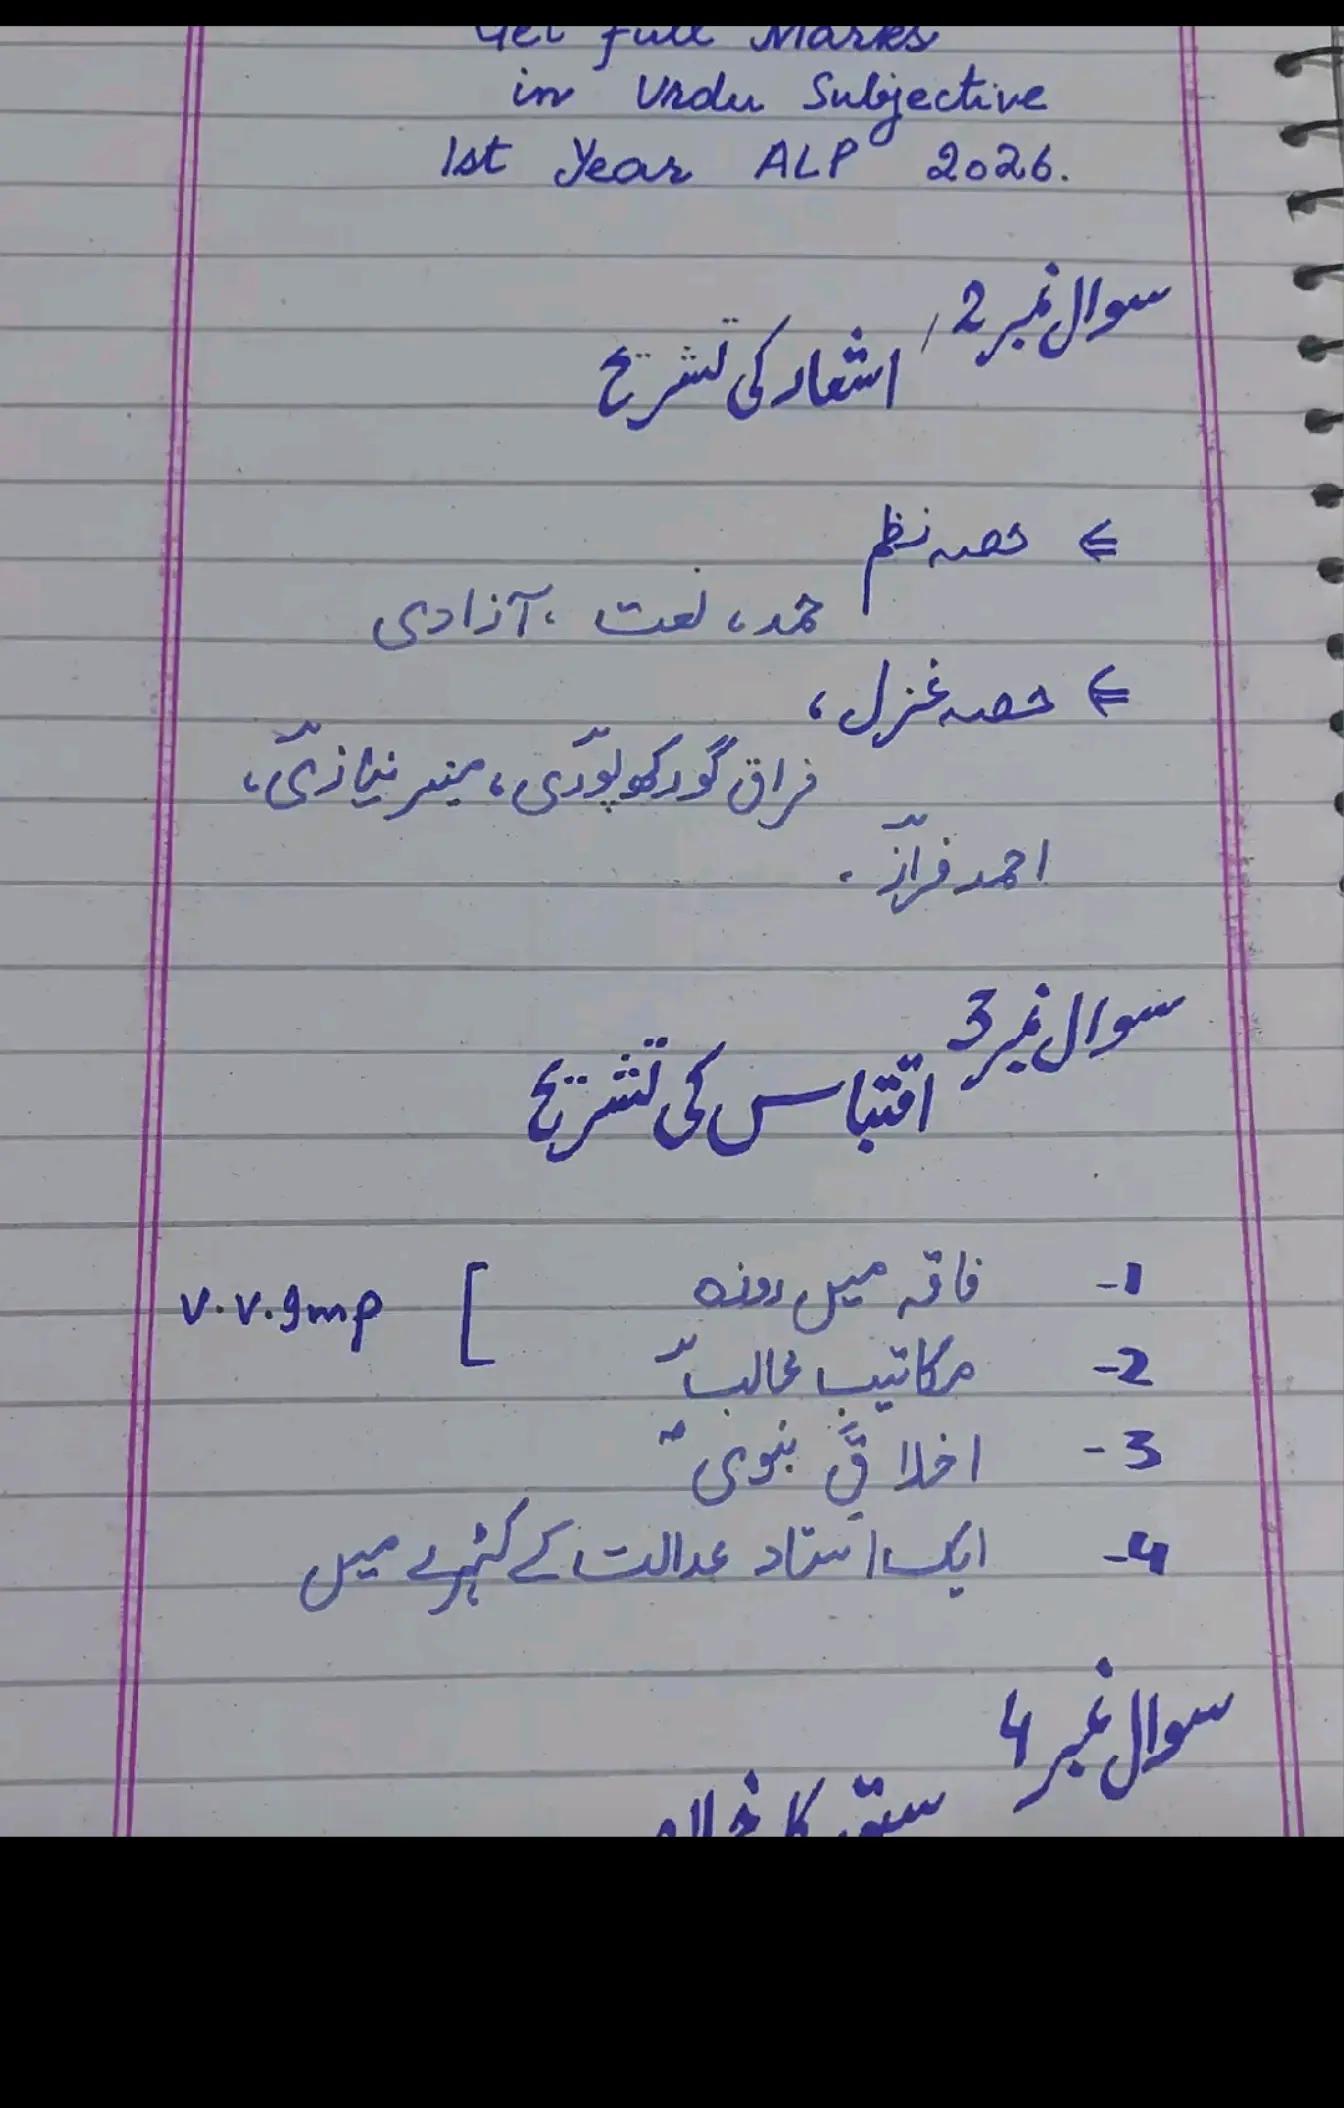 Get full Marks
in Urdu Subjective
1st Year ALP 2026.
سوال نمبر 2 / اشعار کی تشریح
⇐ حصہ نظم
حمد، نعت، آزادی
⇐ حصہ غزل،
فراق گورکھپوری، منیر نیازی،
احمد فراز۔
سوال نمبر 3 اقتباس کی تشریح
1- فاقہ میں روزہ [ V.V.Imp
2- مکاتیب غالب
3- اخلاقِ نبوی ؐ
4- ایک استاد عدالت کے کٹہرے میں
سوال نمبر 4
سبق کا خلاصہ